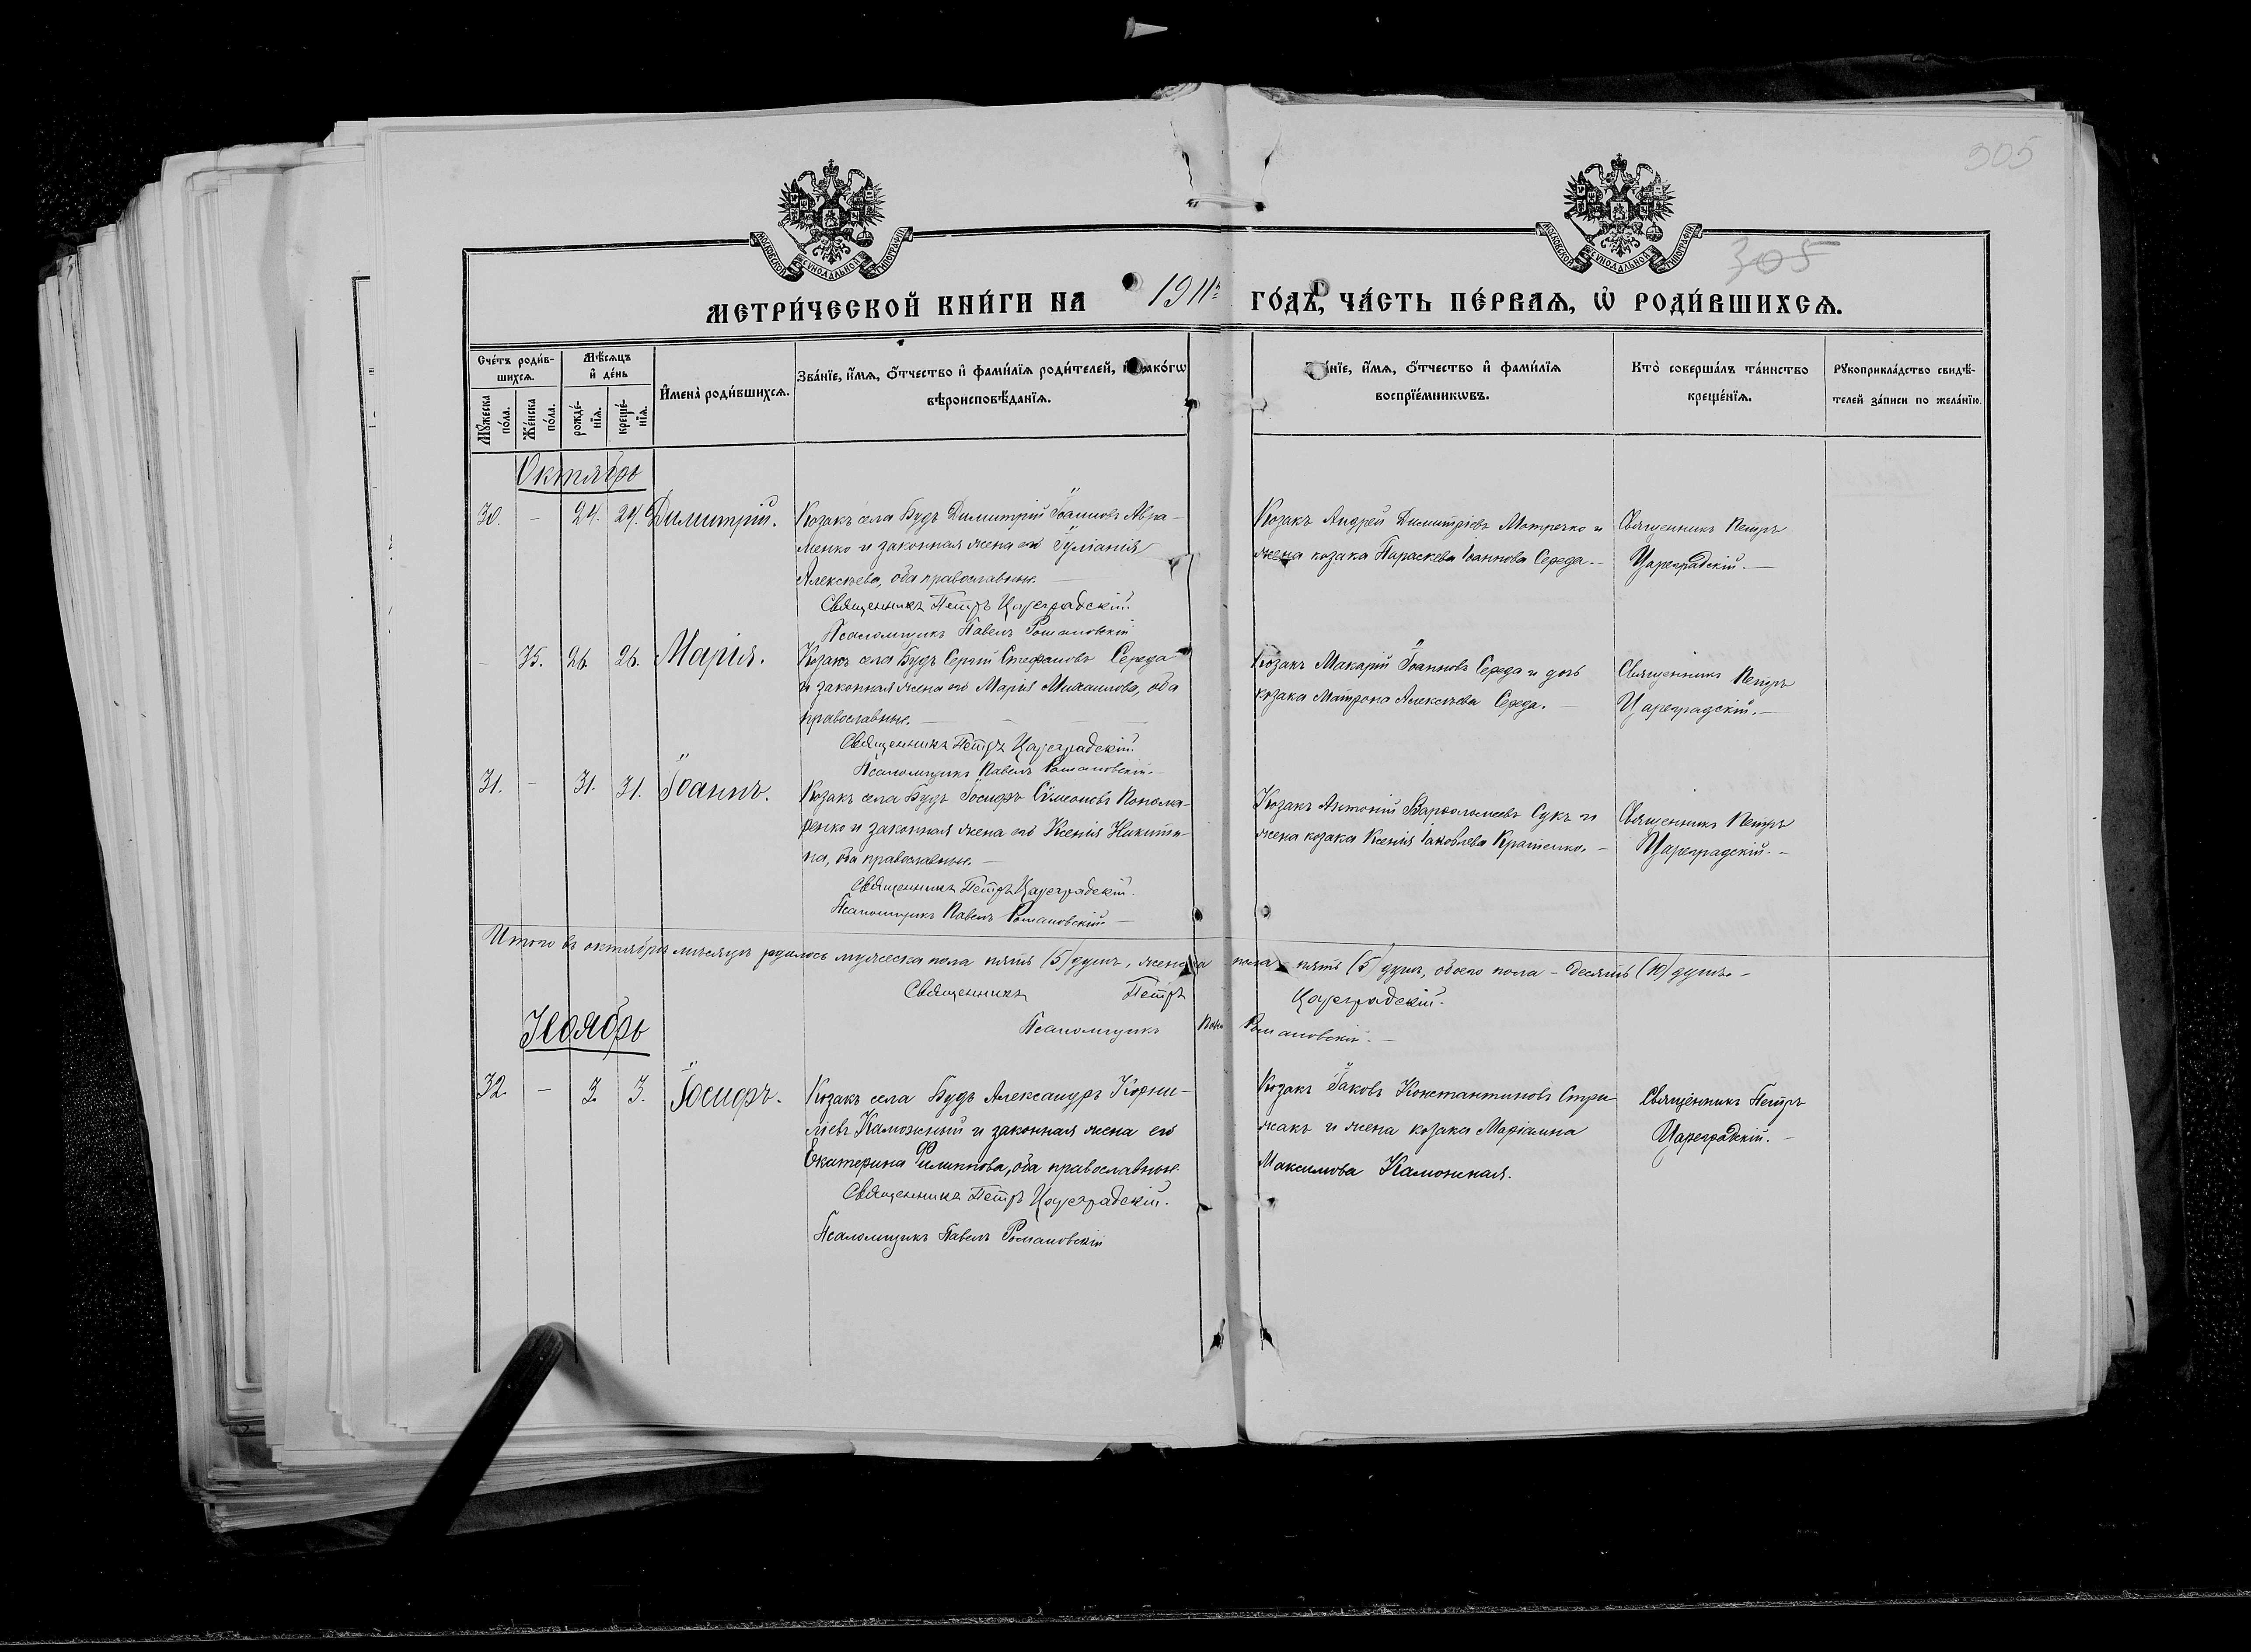 305
МОСКОВСКОЙ СѴНОДАЛЬНОЙ ТИПОГРАФІИ
МОСКОВСКОЙ СѴНОДАЛЬНОЙ ТИПОГРАФІИ
305
МЕТРИ́ЧЕСКОЙ КНИ́ГИ НА 1911й ГО́ДЪ, ЧА́СТЬ ПЕ́РВАѦ, Ѡ҆ РОДИ́ВШИХСѦ.
Сче́тъ роди́в-
шихсѧ.
Мѣ́сѧцъ
и҆ де́нь
И҆мена̀ роди́вшихсѧ.
Зва́нїе, и҆́мѧ, ѻ҆́тчество и҆ фами́лїѧ роди́телей, и҆ како́гѡ
вѣроисповѣ́данїѧ.
Зва́нїе, и҆́мѧ, ѻ҆́тчество и҆ фами́лїѧ
воспрїе́мникѡвъ.
Кто̀ соверша́лъ та́инство
креще́нїѧ.
Рꙋкоприкла́дство свидѣ́-
телей за́писи по жела́нїю.
Мꙋ́жеска
по́ла.
Же́нска
по́ла.
рожде́-
нїѧ.
креще́-
нїѧ.
Октябрь
30. — 24. 24. Димитрій.
Козакъ села Будъ Димитрій Іоанновъ Авра-
менко и законная жена его Іуліанія
Алексѣева, оба православные.
Священникъ Петръ Цареградскій.
Псаломщикъ Павелъ Романовскій
Козакъ Андрей Димитріевъ Мотречко и
жена козака Параскева Іоаннова Середа.
Священникъ Петръ
Цареградскій.
— 35. 26. 26. Марія.
Козакъ села Будъ Сергій Стефановъ Середа
и законная жена его Марія Михаилова, оба
православные.
Священникъ Петръ Цареградскій.
Псаломщикъ Павелъ Романовскій.
Козакъ Макарій Іоанновъ Середа и дочь
козака Матрона Алексѣева Середа.
Священникъ Петръ
Цареградскій.
31. — 31. 31. Іоаннъ.
Козакъ села Будъ Іосифъ Сѵмеоновъ Понома-
ренко и законная жена его Ксенія Никити-
на, оба православные.
Священникъ Петръ Цареградскій.
Псаломщикъ Павелъ Романовскій
Козакъ Антоній Варѳоломеевъ Сукъ и
жена козака Ксенія Іаковлева
Священникъ Петръ
Цареградскій.
Итого въ октябрѣ мѣсяцѣ родилось мужеска пола пять (5) душъ, женска пола пять (5) душъ, обоего пола – десять (10) душъ.
Священникъ Петръ Цареградскій.
Псаломщикъ Романовскій.
Ноябрь
32. — 3. 3. Іосифъ.
Козакъ села Будъ Александръ Корни-
ліевъ Каможный и законная жена его
Екатерина Филиппова, оба православные.
Священникъ Петръ Цареградскій.
Псаломщикъ Павелъ Романовскій
Козакъ Іаковъ Константиновъ Стри-
жакъ и жена козака Маріамна
Максимова Каможная.
Священникъ Петръ
Цареградскій.